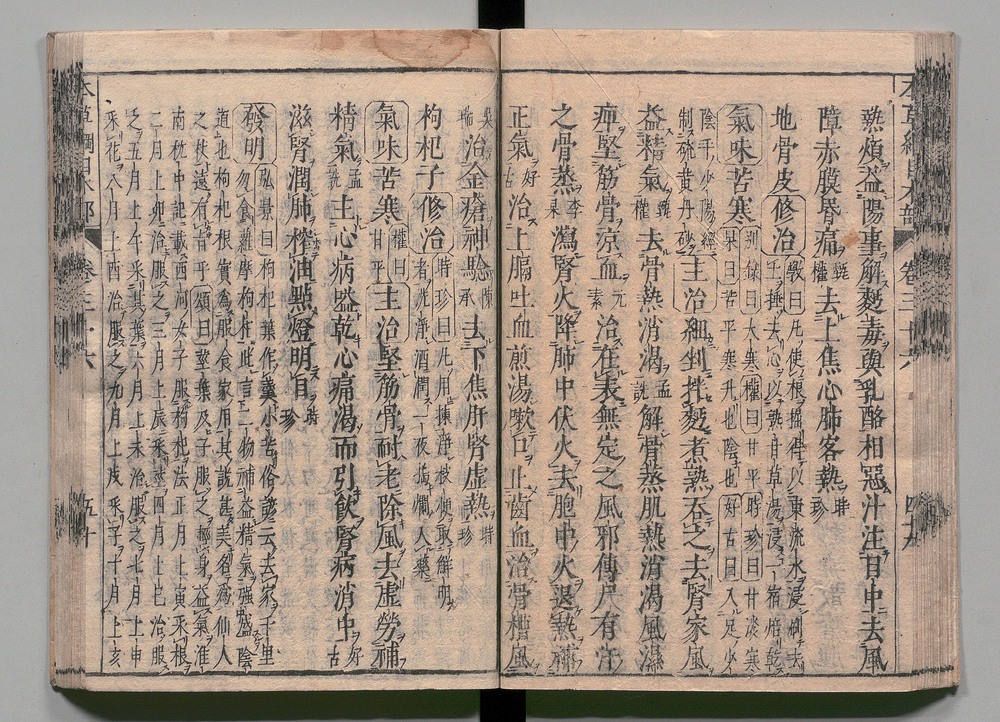 熱煩益陽事解麪毒與乳酪相惡汁注目中去風
障赤膜昏痛甄權去上焦心肺客熱時珍
地骨皮修治斆曰凡使根掘得以東流水浸刷去
土捶去心以熟甘草湯浸一宿焙乾
氣味苦寒別錄曰大寒權曰甘平時珍曰甘淡寒
杲曰苦平寒升也陰也好古曰入足少
陰手少陽經
制硫黄丹砂主治細剉拌麪煮熟吞之去腎家風
益精氣甄權去骨熱消渴孟詵解骨蒸肌熱消渴風濕
痺堅筋骨涼血元素治在表無定之風邪傳尸有汗
之骨蒸李杲瀉腎火降肺中伏火去胞中火退熱補
正氣好古治上膈吐血煎湯嗽口止齒血治骨槽風
吳瑞治金瘡神驗陳承去下焦肝腎虛熱時珍
枸杞子修治時珍曰凡用揀淨枝梗取鮮明
者洗淨酒潤一夜擣爛入藥
氣味苦寒權曰甘平主治堅筋骨耐老除風去虛勞補
精氣孟詵主心病嗌乾心痛渴而引飲腎病消中好古
滋腎潤肺榨油點燈明目時珍
發明弘景曰枸杞葉作羹小苦俗諺云去家千里
勿食蘿摩枸杞此言二物補益精氣強盛陰
道也枸杞根實爲服食家用其說甚美名爲仙人
之杖遠有旨乎頌曰莖葉及子服之輕身益氣淮
南枕中記載西河女子服枸杞法正月上寅采根
二月上卯治服之三月上辰采莖四月上巳治服
之五月上午采其葉六月上未治服之七月上申
采花八月上酉治服之九月上戌采子十月上亥
本草綱目木部 卷三十六 五十